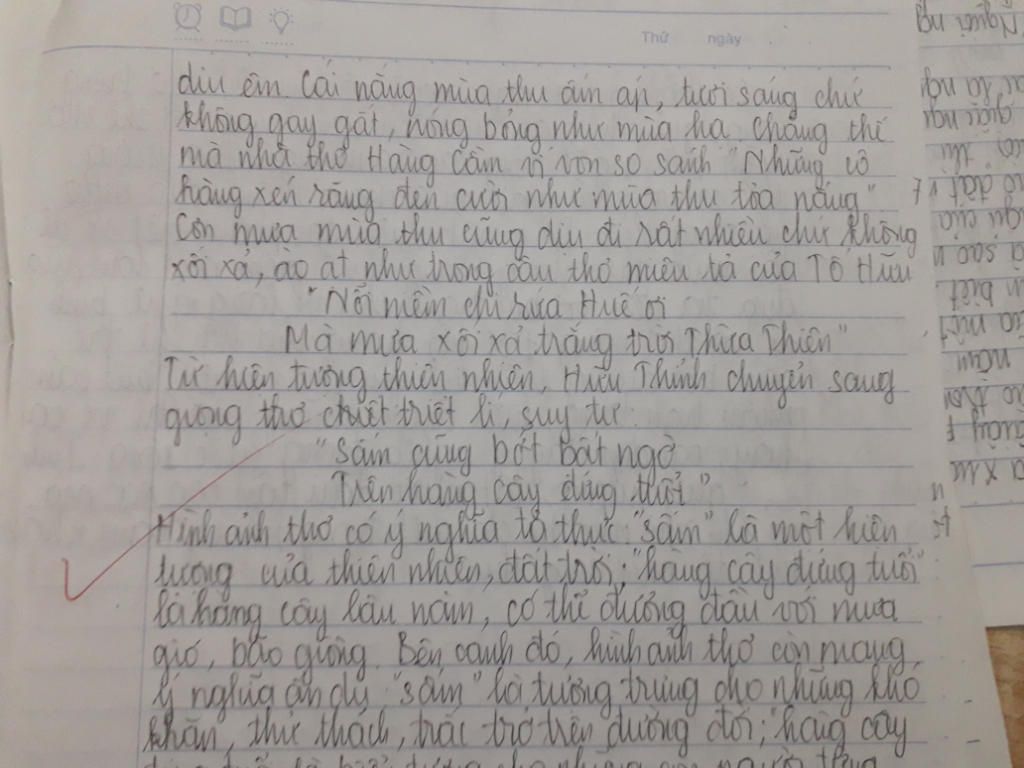 Thứ ngày
dịu êm. Cái nắng mùa thu ấm áp, tươi sáng chứ
không gay gắt, nóng bỏng như mùa hạ chẳng thế
mà nhà thơ Hàng Cầm ví von so sánh "Những cô
hàng xén răng đen cười như mùa thu tỏa nắng"
Còn mưa mùa thu cũng dịu đi rất nhiều chứ không
xối xả, ào ạt như trong câu thơ miêu tả của Tố Hữu
"Nỗi niềm chi rứa Huế ơi
Mà mưa xối xả trắng trời Thừa Thiên"
Từ hiện tượng thiên nhiên, Hữu Thỉnh chuyển sang
giọng thơ chiết triết lí, suy tư:
"Sấm cũng bớt bất ngờ
Trên hàng cây đứng tuổi"
Hình ảnh thơ có ý nghĩa tả thực: "sấm" là một hiện
tượng của thiên nhiên, đất trời; "hàng cây đứng tuổi"
là hàng cây lâu năm, có thể đương đầu với mưa
gió, bão giông. Bên cạnh đó, hình ảnh thơ còn mang
ý nghĩa ẩn dụ "sấm" là tượng trưng cho những khó
khăn, thử thách, trắc trở trên đường đời; "hàng cây